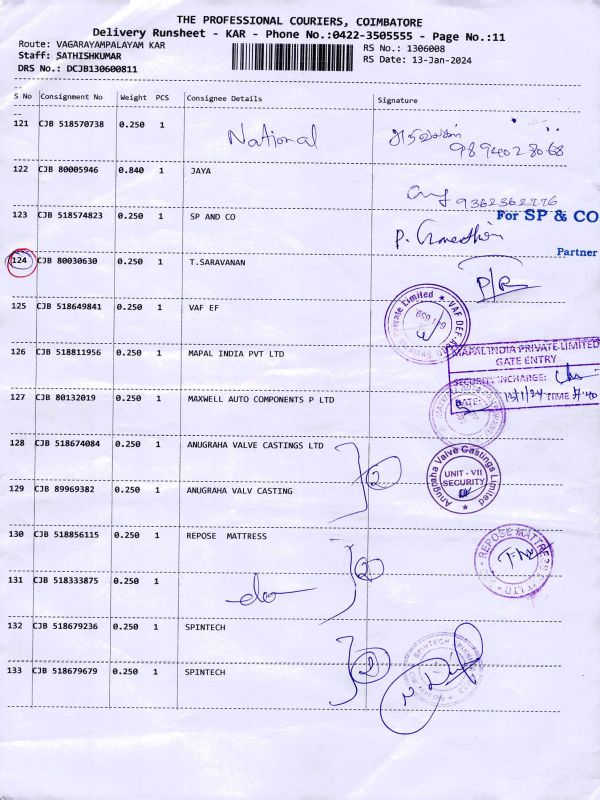 THE PROFESSIONAL COURIERS, COIMBATORE
Delivery Runsheet - KAR - Phone No.:0422-3505555 - Page No.:11
Route: VAGARAYAMPALAYAM KAR
RS No.: 1306008
Staff: SATHISHKUMAR
RS Date: 13-Jan-2024
DRS No.: DCJB130600811
S No Consignment No Weight PCS Consignee Details Signature
121 CJB 518570738 0.250 1 National
9894028068
122 CJB 80005946 0.840 1 JAYA
9362362776
123 CJB 518574823 0.250 1 SP AND CO
For SP & CO
P.
Partner
124 CJB 80030630 0.250 1 T.SARAVANAN
125 CJB 518649841 0.250 1 VAF EF
126 CJB 518811956 0.250 1 MAPAL INDIA PVT LTD
MAPAL INDIA PRIVATE LIMITED
GATE ENTRY
SECURITY INCHARGE:
DATE: 13/1/24 TIME
127 CJB 80132019 0.250 1 MAXWELL AUTO COMPONENTS P LTD
128 CJB 518674084 0.250 1 ANUGRAHA VALVE CASTINGS LTD
2
Anugraha Valve Castings Limited
UNIT - VII
SECURITY
129 CJB 89969382 0.250 1 ANUGRAHA VALV CASTING
130 CJB 518856115 0.250 1 REPOSE MATTRESS
2
REPOSE MATTRESS
131 CJB 518333875 0.250 1 do
132 CJB 518679236 0.250 1 SPINTECH
2
SPINTECH
133 CJB 518679679 0.250 1 SPINTECH